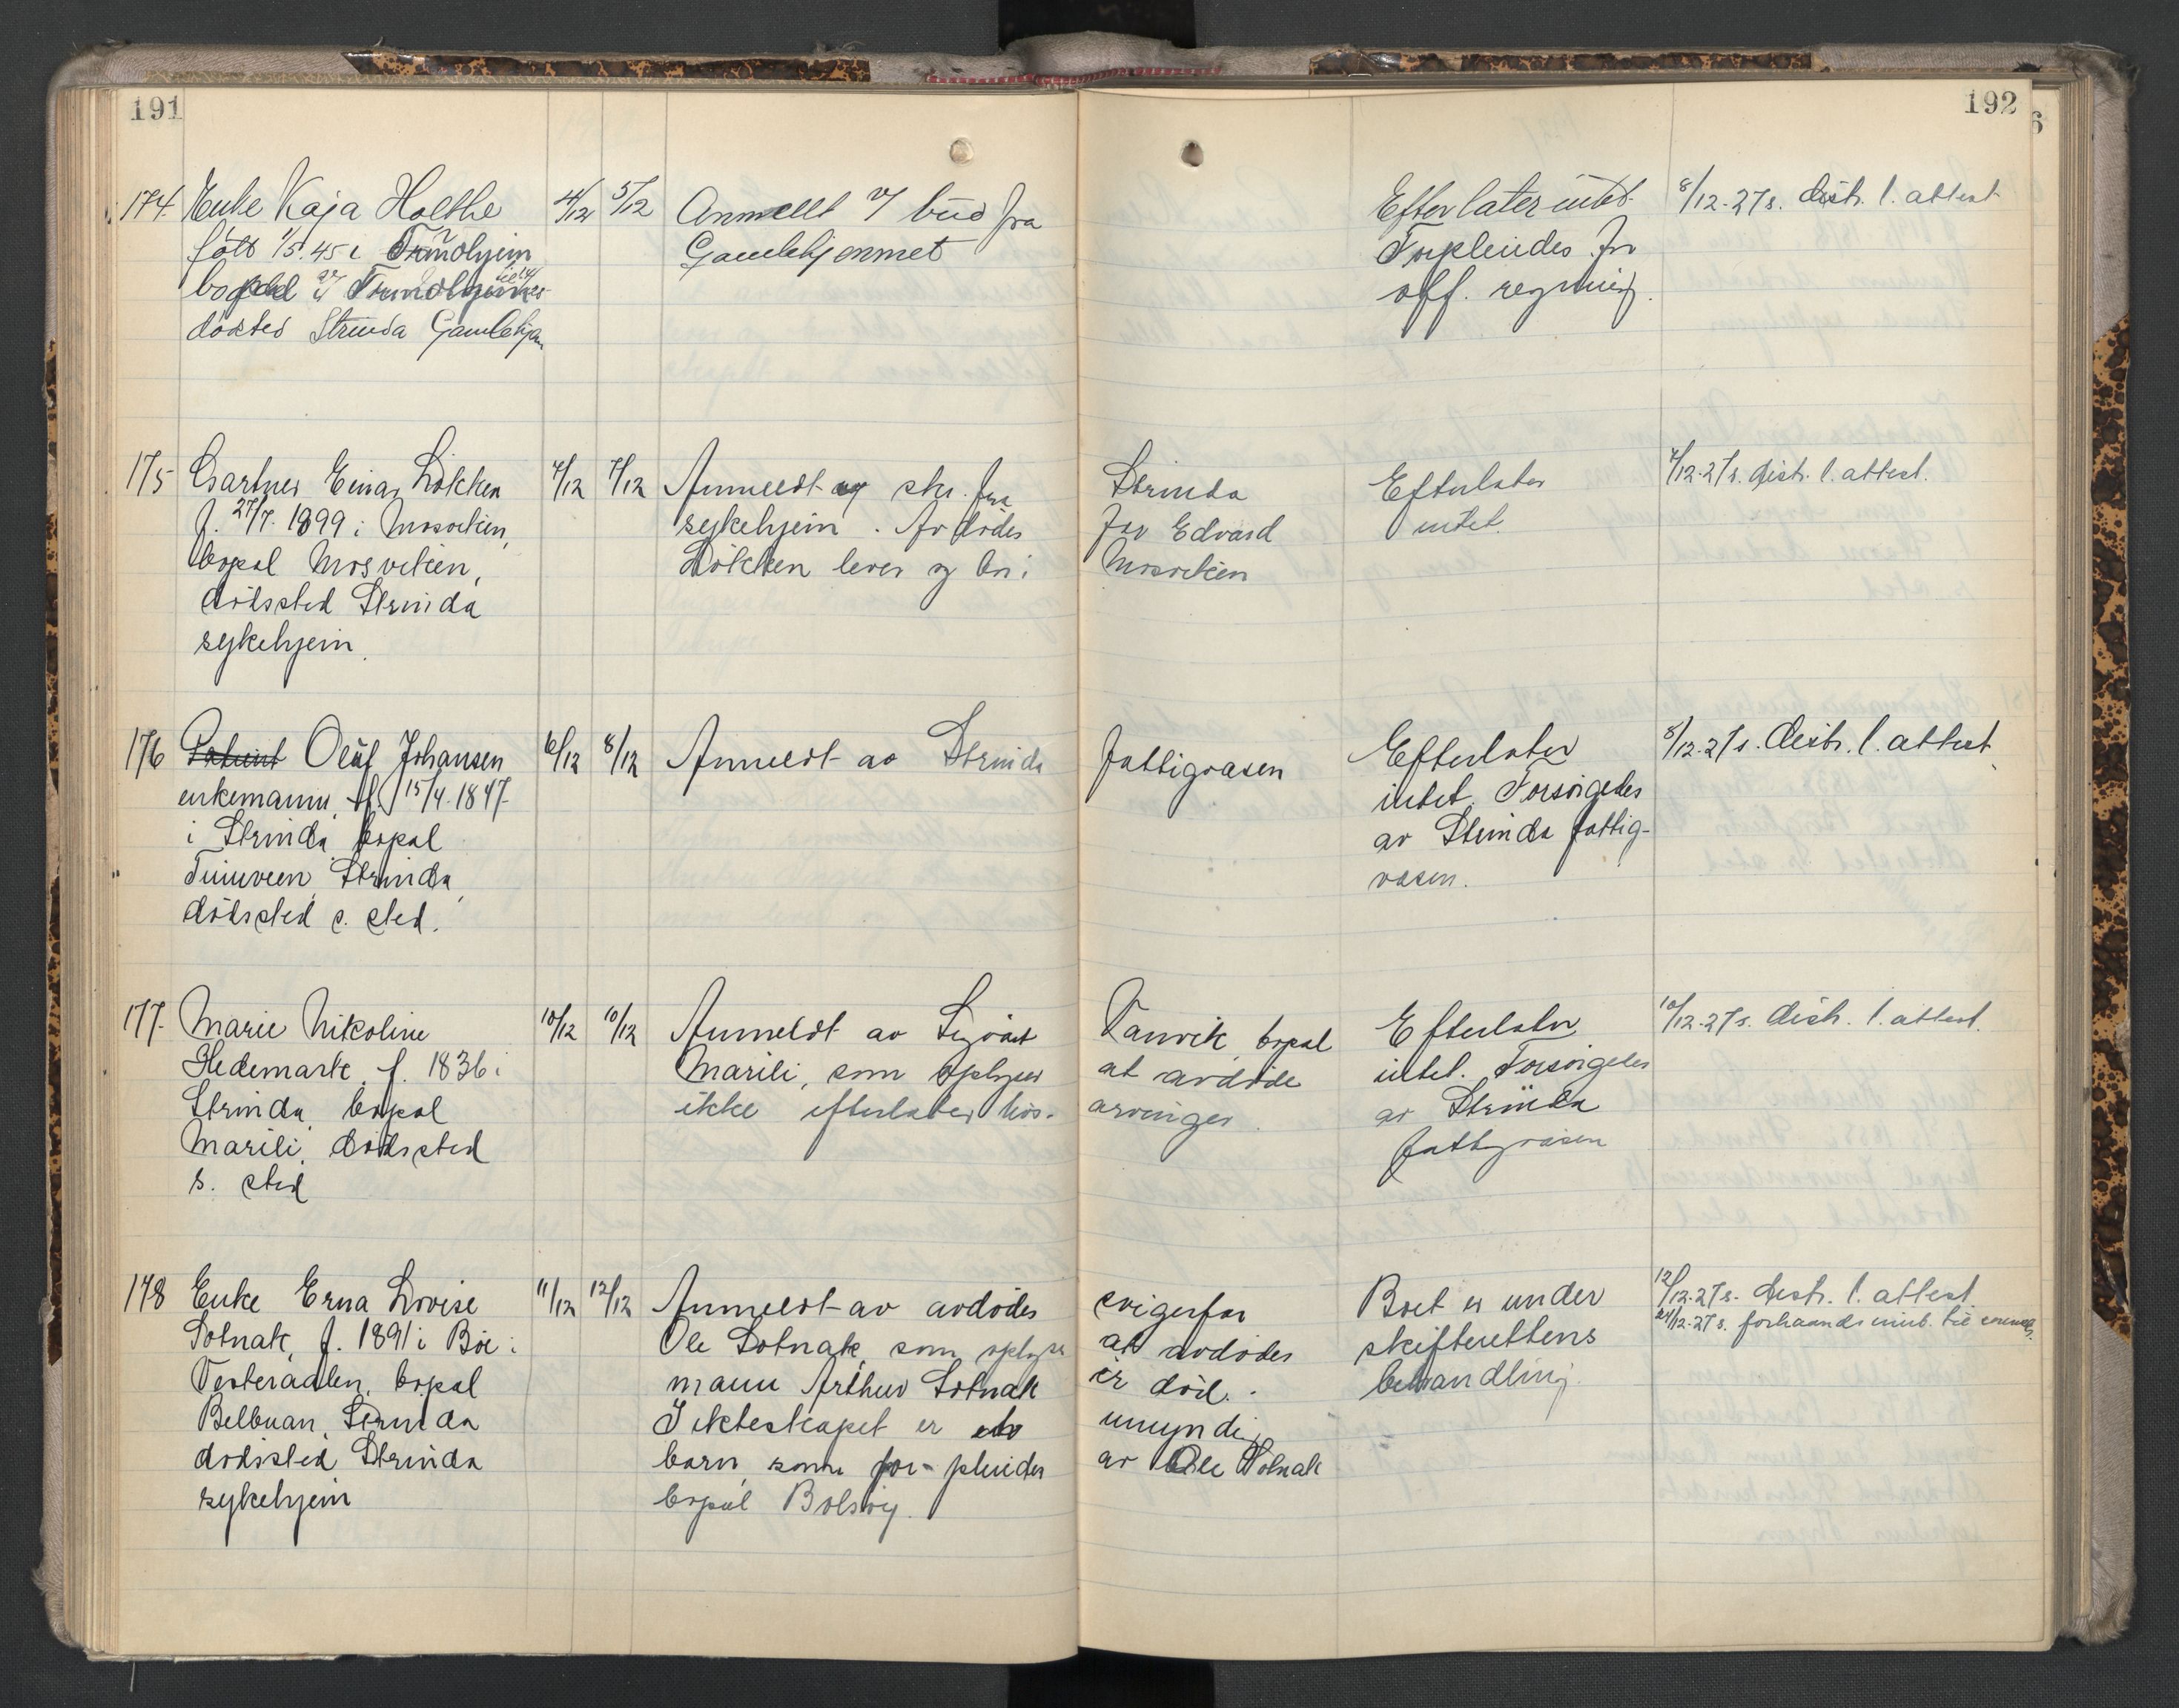 191
192
174. Enke Kaja Holthe 4/12 5/12 Anmeldt v/ bud fra Efterlater intet. 8/12-27 s. distr. l. attest
født 1/5.45 i Trondhjem Gamlehjemmet Forpleiedes for
bopæl Trondhjem off. regning.
dødsted Strinda Gamlehjem
175 Gartner Einar Løkken 4/12 7/12 Anmeldt av skr. fra Strinda Efterlater 7/12-27 s. distr. l. attest.
f. 27/7. 1899 i Mosviken, sykehjem. Avdødes far Edvard intet.
bopæl Mosviken, Løkken lever og bor i Mosviken
dødssted Strinda
sykehjem.
176 Patient Oluf Johansen 6/12 8/12 Anmeldt av Strinda fattigvæsen Efterlater 8/12-27 s. distr. l. attest.
enkemann, f. 15/4-1847 intet. Forsørgedes
i Strinda, bopæl av Strinda fattig-
Strinda, væsen.
dødssted s. sted.
177. Marie Nikoline 10/12 10/12 Anmeldt av Ranvik, bopæl Efterlater 10/12-27 s. distr. l. attest.
Hedemark, f. 1836 i Marili, som oplyser at avdøde intet. Forsørgedes
Strinda, bopæl ikke efterlater livs- arvinger. av Strinda
Marili, dødssted fattigvæsen
s. sted
178 Enke Erna Lovise 11/12 12/12 Anmeldt av avdødes svigerfar Boet er under 12/12-27 s. distr. l. attest
Solnak, f. 1891 i Bø i Ole Solnak, som oplyser at avdødes skifterettens 24/12-27 s. forhaands
Vesteraalen, bopæl mann Arthur Solnak er død. behandling.
Belbuan, Strinda I ekteskapet er umyndig
dødssted Strinda barn, som for-pleides av Ole Solnak
sykehjem bopæl